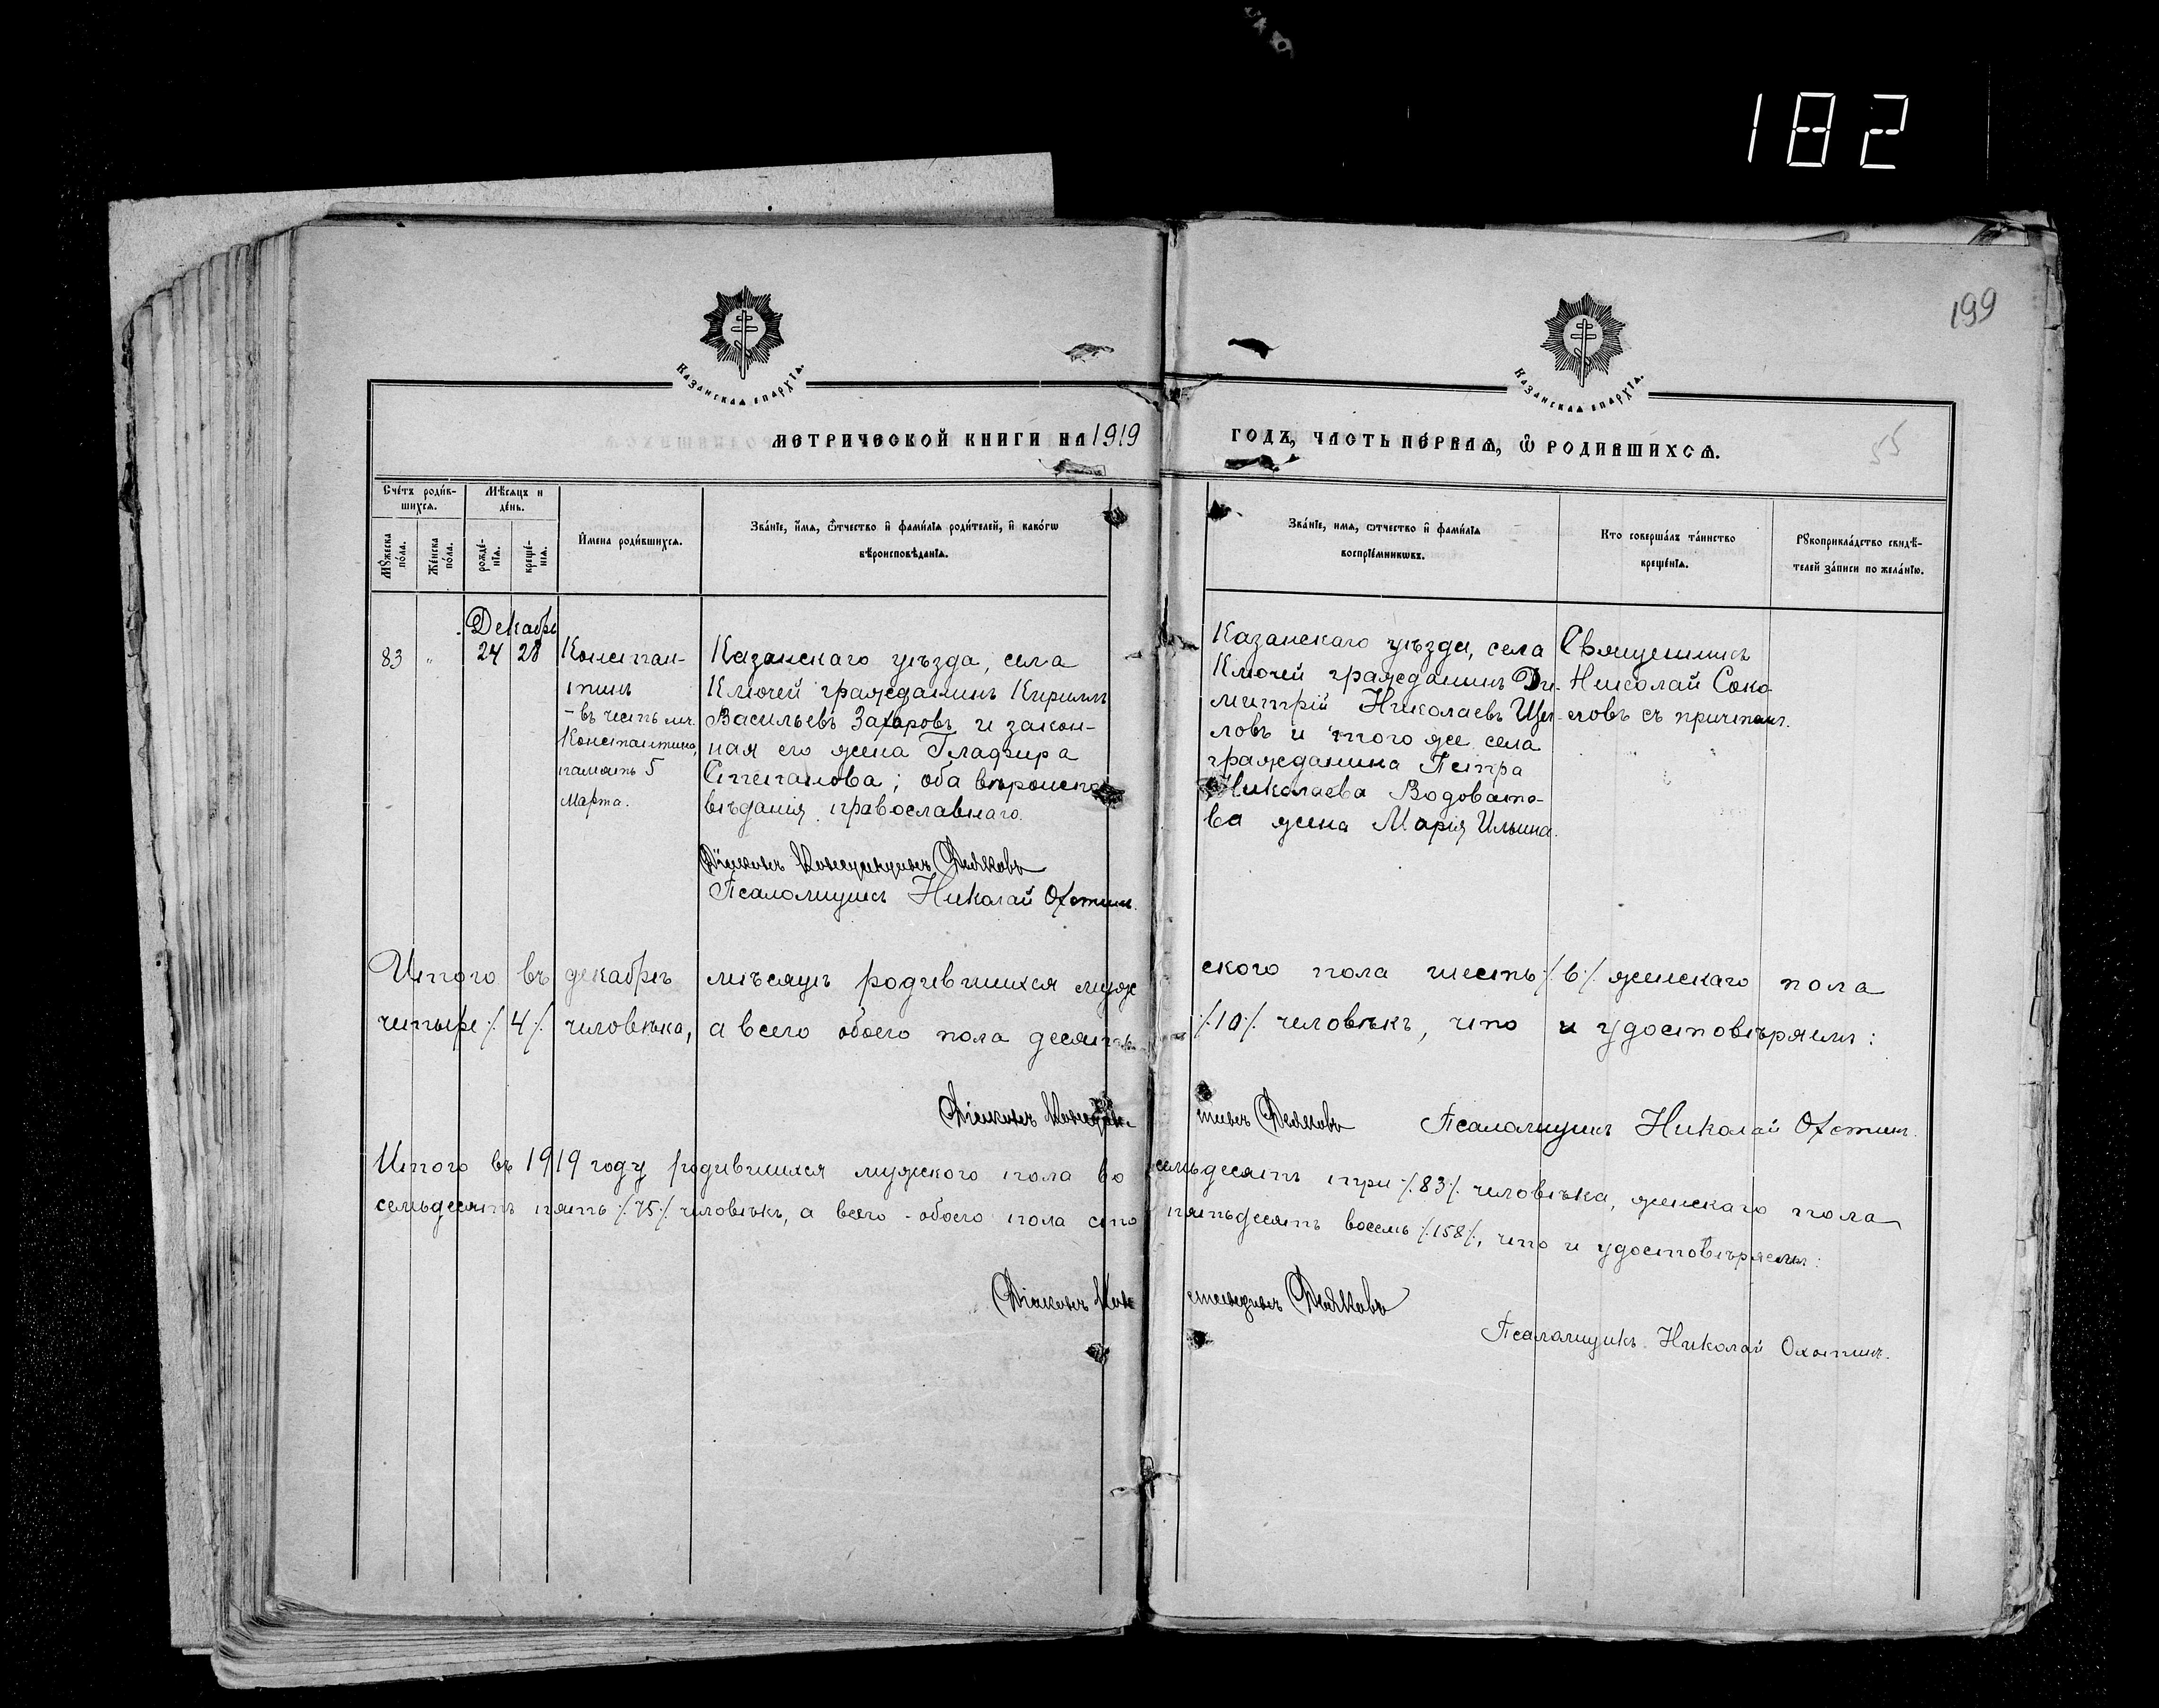 182
199
Казанская епархїѧ.
Казанская епархїѧ.
МЕТРИЧЕСКОЙ КНИГИ НА 1919
ГОДЪ, ЧАСТЬ ПЕ́РВАѦ, Ѽ РОДИВШИХСѦ.
55
Сче́тъ роди́в-
шихсѧ.
Мѣ́сѧцъ и
де́нь.
Мꙋ́жеска
по́ла.
Же́нска
по́ла.
рожде́-
нїѧ.
креще́-
нїѧ.
И́мена роди́вшихсѧ.
Зва́нїе, и́мѧ, ѻ҆́тчество и҆ фами́лїѧ роди́телей, и҆ како́гѡ
вѣроисповѣ́данїѧ.
Зва́нїе, имѧ, ѻтчество и҆ фами́лїѧ
воспрїе́мникѡвъ.
Кто соверша́лъ та́инство
креще́нїѧ.
Рꙋкоприкла́дство свидѣ́-
телей за́писи по жела́нїю.
Декабрь
83 " 24 28
Констан-
тинъ
- въ честь мч.
Константина,
память 5
Марта.
Казанскаго уѣзда, села
Ключей гражданинъ Кириллъ
Васильевъ Захаровъ и закон-
ная его жена Глафира
Степанова; оба вѣроиспо-
вѣданія православнаго.
Діаконъ Константинъ Дьяковъ
Псаломщикъ Николай Охотинъ.
Казанскаго уѣзда, села
Ключей гражданинъ Ди-
митрій Николаевъ
ловъ и того же села
гражданина Петра
Николаева Водовато-
ва жена Марія Ильина.
Священникъ
Николай Соко-
ловъ съ причтомъ.
Итого въ декабрѣ мѣсяцѣ родившихся муж ского пола шесть ·/.6·/. женскаго пола
четыре ·/. 4·/. человѣка, а всего обоего пола десять ·/.10·/. человѣкъ, что и удостовѣряемъ:
Діаконъ Констан- тинъ Дьяковъ Псаломщикъ Николай Охотинъ.
Итого въ 1919 году родившихся мужского пола во семьдесятъ три ·/.83·/. человѣка, женскаго пола
семьдесятъ пять ·/.75·/. человѣкъ, а всего обоего пола сто пятьдесятъ восемь ·/.158·/., что и удостовѣряемъ:
Діаконъ Кон стантинъ Дьяковъ
Псаломщикъ Николай Охотинъ.